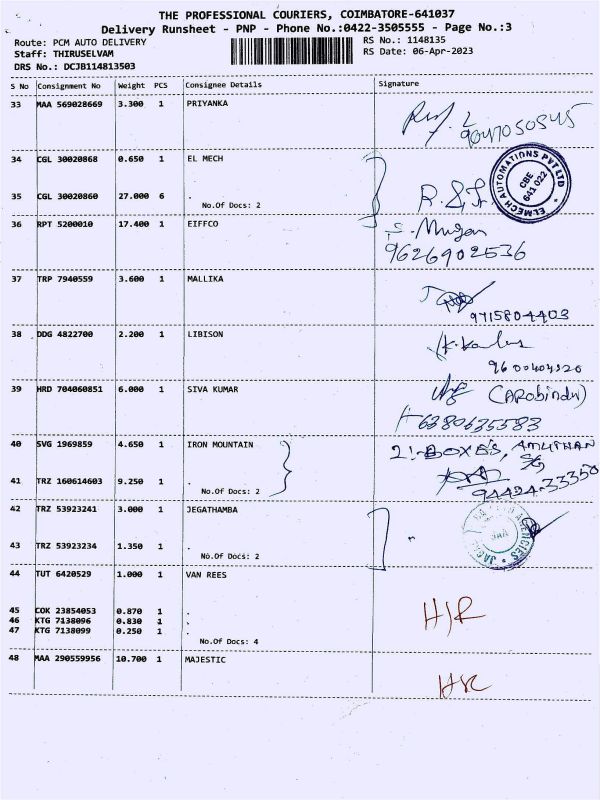 THE PROFESSIONAL COURIERS, COIMBATORE-641037
Delivery Runsheet - PNP - Phone No.:0422-3505555 - Page No.:3
Route: PCM AUTO DELIVERY
RS No.: 1148135
Staff: THIRUSELVAM
RS Date: 06-Apr-2023
DRS No.: DCJB114813503
S No Consignment No Weight PCS Consignee Details Signature
33 MAA 569028669 3.300 1 PRIYANKA
9047050545
34 CGL 30020868 0.650 1 EL MECH
35 CGL 30020860 27.000 6 .
No.Of Docs: 2
ELMECH AUTOMATIONS PVT LTD
CBE
641 022
36 RPT 5200010 17.400 1 EIFFCO
S. Mugan
9626902536
37 TRP 7940559 3.600 1 MALLIKA
9715804403
38 DDG 4822700 2.200 1 LIBISON
9600404320
39 HRD 704060851 6.000 1 SIVA KUMAR
(Arobindu)
6380635583
40 SVG 1969859 4.650 1 IRON MOUNTAIN
2!-BOXES, AMUTHAN
41 TRZ 160614603 9.250 1 .
No.Of Docs: 2
94424-33350
42 TRZ 53923241 3.000 1 JEGATHAMBA
AGENCIES
43 TRZ 53923234 1.350 1 .
No.Of Docs: 2
44 TUT 6420529 1.000 1 VAN REES
45 COK 23854053 0.870 1 .
46 KTG 7138096 0.830 1 .
47 KTG 7138099 0.250 1 .
No.Of Docs: 4
H/R
48 MAA 290559956 10.700 1 MAJESTIC